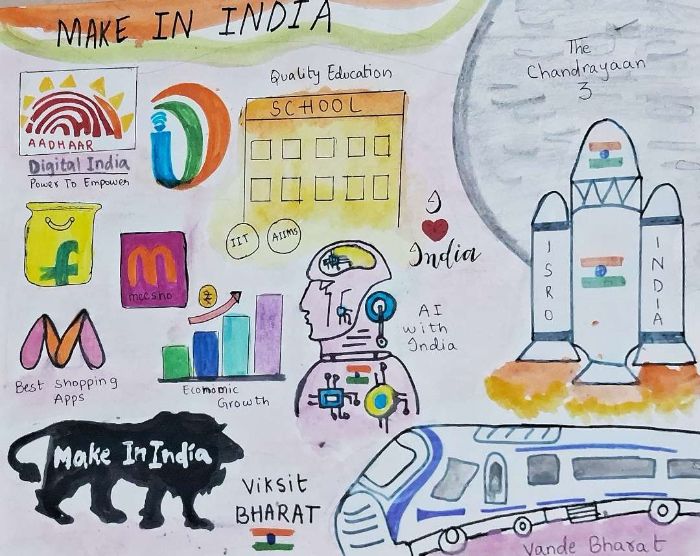 MAKE IN INDIA
AADHAAR
Digital India
Power To Empower
Quality Education
SCHOOL
IIT
AIIMS
The
Chandrayaan
3
ISRO
INDIA
I
India
f
m
meesho
M
Best shopping
Apps
₹
Economic
Growth
AI
with
India
Make In India
Viksit
BHARAT
Vande Bharat